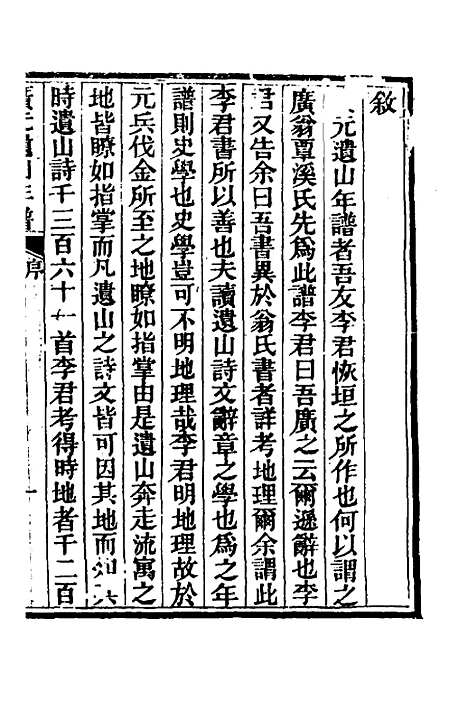 敘
元遺山年譜者吾友李君恢垣之所作也何以謂之
廣翁覃溪氏先爲此譜李君曰吾廣之云爾遜辭也李
君又告余曰吾書異於翁氏書者詳考地理爾余謂此
李君書所以善也夫讀遺山詩文辭章之學也爲之年
譜則史學也史學豈可不明地理哉李君明地理故於
元兵伐金所至之地瞭如指掌由是遺山奔走流寓之
地皆瞭如指掌而凡遺山之詩文皆可因其地而知其
時遺山詩千三百六十一首李君考得時地者千二百
廣元遺山年譜 序 一